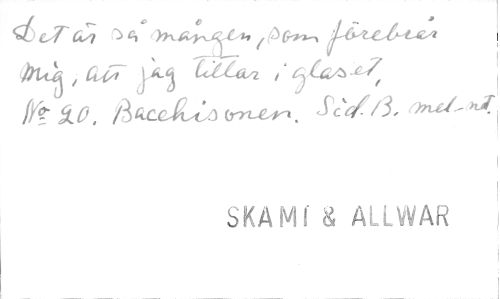 Det är så mången, som förebrår
mig, att jag tillar i glaset,
No 20. Bacchisonen. Sid. B. mel-nt.
SKAMT & ALLWAR